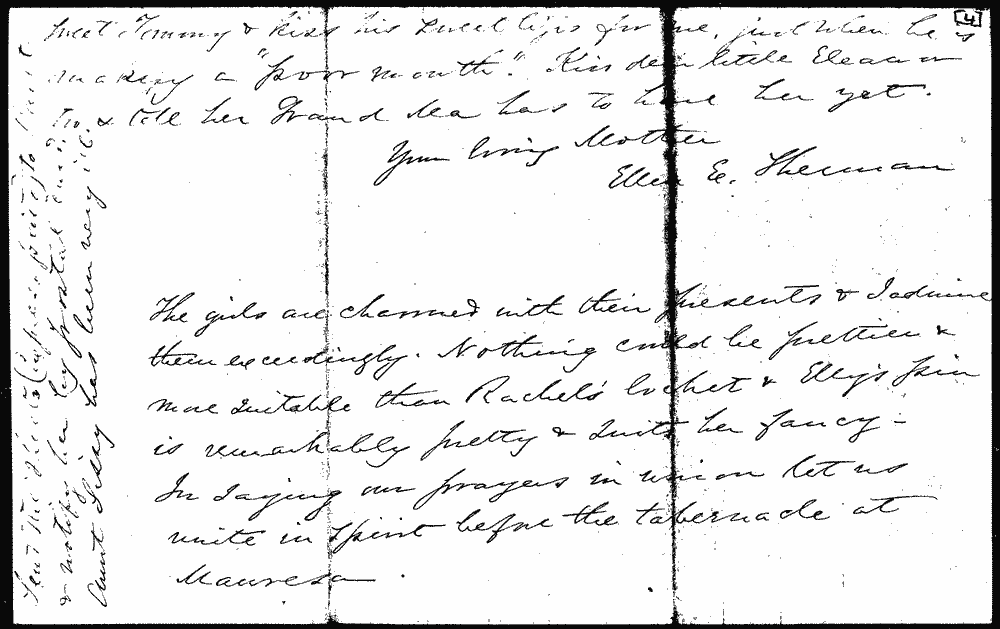 [4]
sweet Tommy & kiss his sweet lips for me, just when he is
making a "poor mouth". Kiss dear little Eleanor
too & tell her Grand Ma has to have her yet.
Your loving Mother
Ellen E. Sherman
The girls are charmed with their presents & I admire
them exceedingly. Nothing could be prettier &
more suitable than Rachel's locket & Elly's pin
is remarkably pretty & suits her fancy -
In saying our prayers in union let us
unite in spirit before the tabernacle at
Manresa.
Send the
& notify her by postal card?
Aunt Sissy has been very ill.